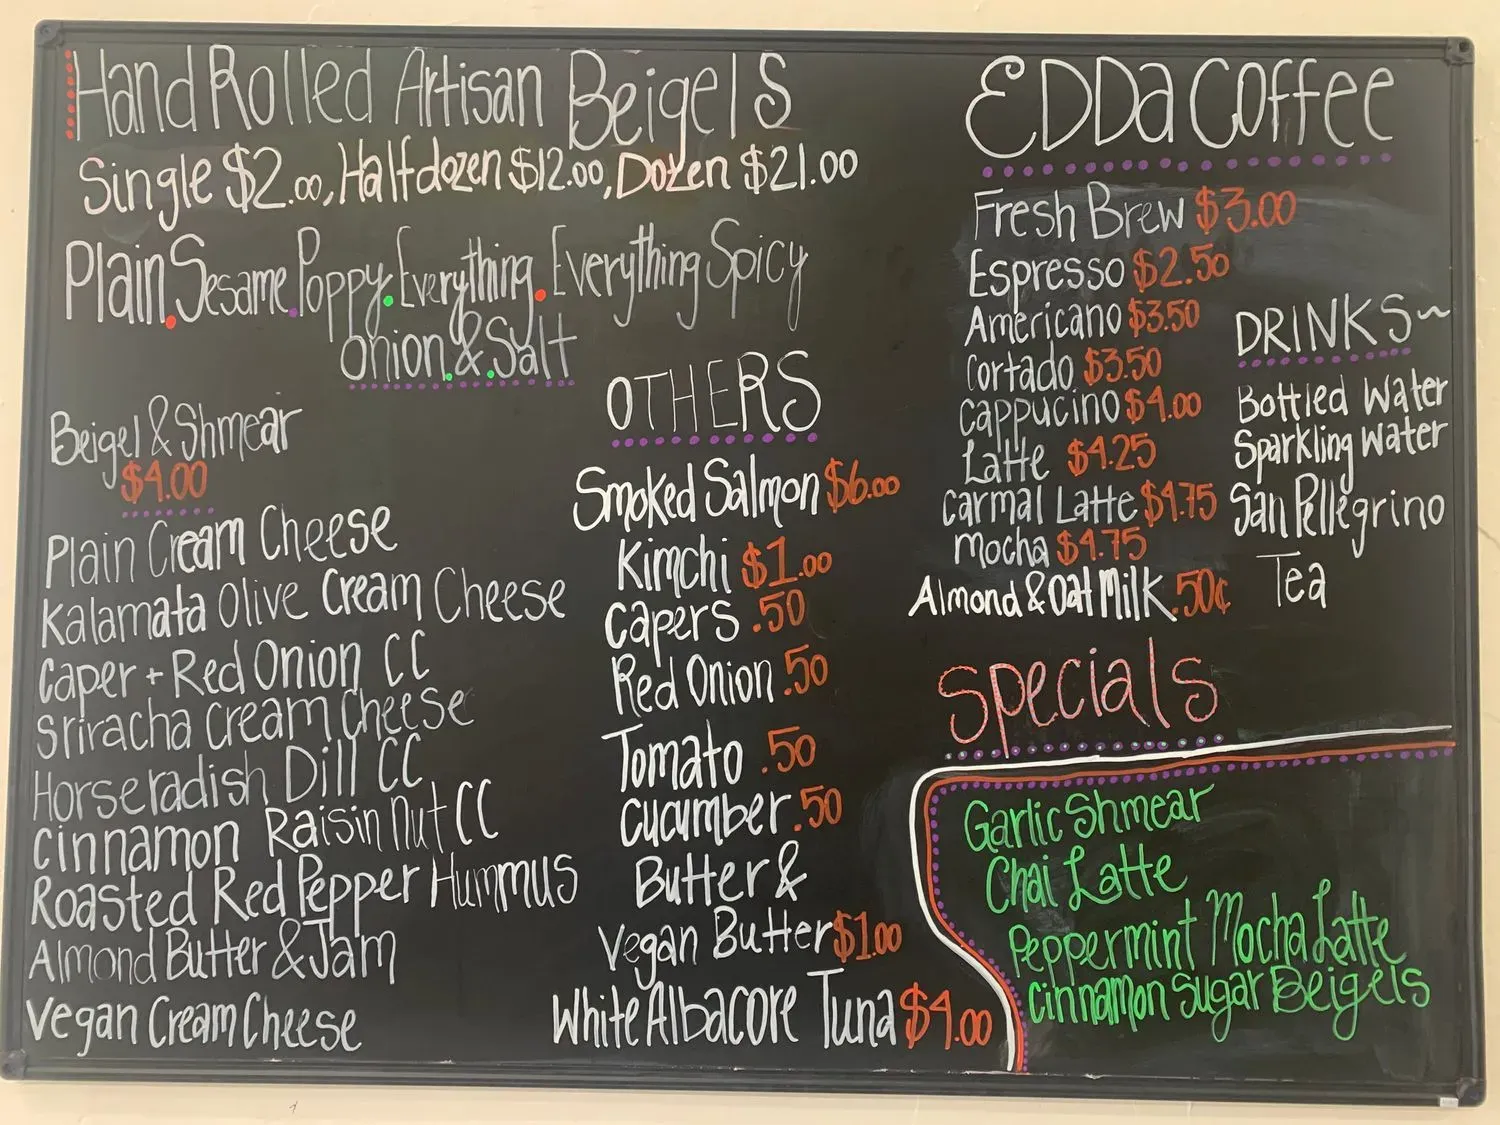 Hand Rolled Artisan Beigels
Single $2.00, Half dozen $12.00, Dozen $21.00
Plain.Sesame.Poppy.Everything.Everything Spicy
Onion.&.Salt
Beigel & Shmear
$4.00
Plain Cream Cheese
Kalamata Olive Cream Cheese
Caper + Red Onion CC
Sriracha Cream Cheese
Horseradish Dill CC
Cinnamon Raisin Nut CC
Roasted Red Pepper Hummus
Almond Butter & Jam
Vegan Cream Cheese
OTHERS
Smoked Salmon $6.00
Kimchi $1.00
Capers .50
Red Onion .50
Tomato .50
Cucumber .50
Butter &
Vegan Butter $1.00
White Albacore Tuna $4.00
EDDa Coffee
Fresh Brew $3.00
Espresso $2.50
Americano $3.50
Cortado $3.50
Cappucino $4.00
Latte $4.25
Carmal Latte $4.75
Mocha $4.75
Almond & Oat Milk .50¢
DRINKS~
Bottled Water
Sparkling Water
San Pellegrino
Tea
Specials
Garlic Shmear
Chai Latte
Peppermint Mocha Latte
Cinnamon Sugar Beigels